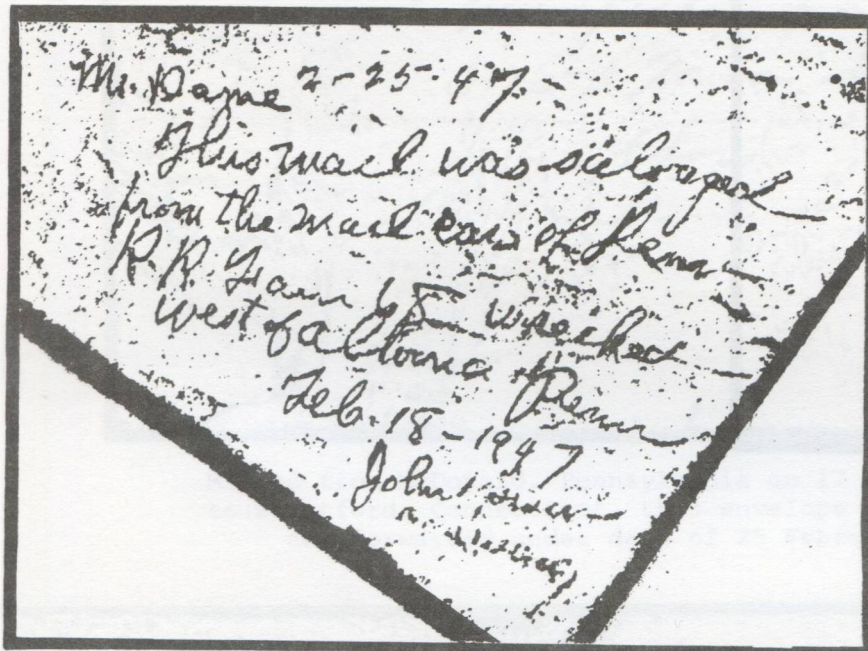 Mr. Dame 2-25-47
This mail was salvaged
from the mail car of Penn
R.R. Train 68 wrecked
west of Altoona Penn
Feb. 18-1947
John